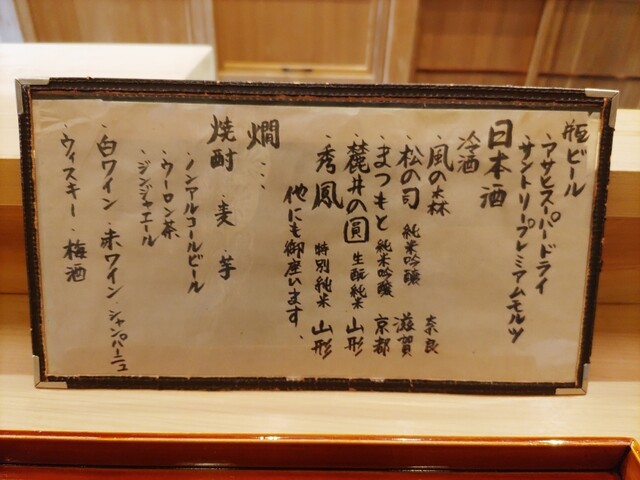 瓶ビール
・アサヒスーパードライ
・サントリープレミアムモルツ
日本酒
冷酒
・風の森 奈良
・松の司 純米吟醸 滋賀
・まつもと 純米吟醸 京都
・麓井の圓 生酛純米 山形
・秀鳳 特別純米 山形
他にも御座います、
燗・・・
焼酎・麦・芋
・ノンアルコールビール
・ウーロン茶
・ジンジャエール
・白ワイン・赤ワイン・シャンパーニュ
・ウィスキー・梅酒